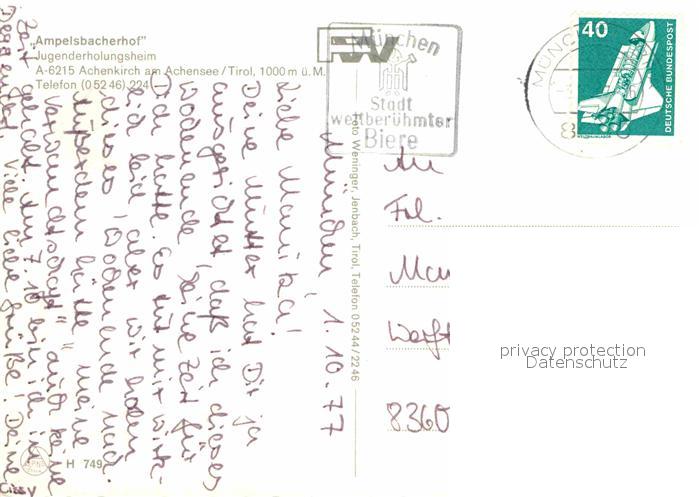 „Ampelsbacherhof"
Jugenderholungsheim
A-6215 Achenkirch am Achensee/Tirol, 1000 m ü. M.
Telefon (0 52 46) 224
München
Stadt
weltberühmter
Biere
MÜNC
8
40
DEUTSCHE BUNDESPOST
München, 1.10.77
Liebe Manuela!
Deine Mutter hat Dir ja
ausgerichtet, daß ich dieses
Wochenende keine Zeit für
Dich hatte. Es tut mir wirk-
lich leid, aber wir haben
dieses Wochenende und
außerdem hätte meine
"Verwandtschaft" auch keine
Zeit gehabt. Am 7.10. bin ich in
Deggendorf. Viele liebe Grüße! Deine
Cissy
Foto Weninger, Jenbach, Tirol, Telefon 0 52 44 / 22 46
An
Frl.
Man
Werft
8360
privacy protection
Datenschutz
H 749